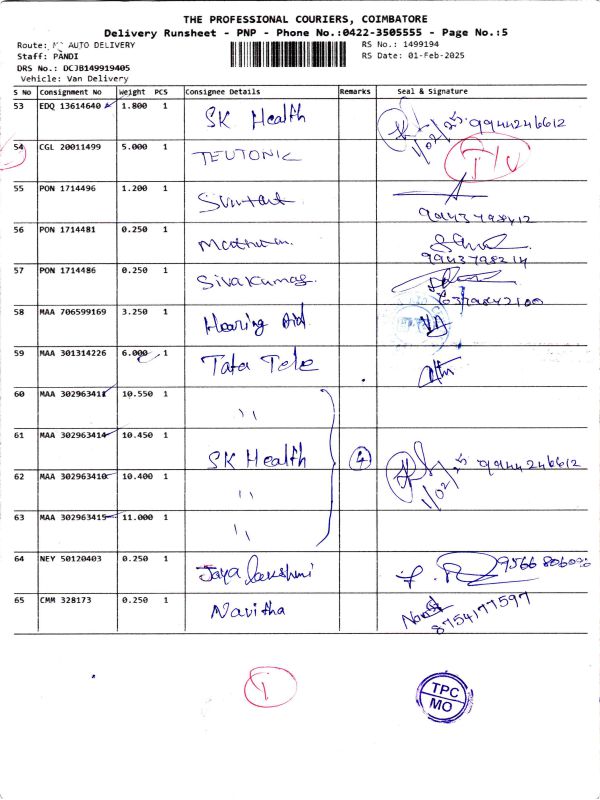 THE PROFESSIONAL COURIERS, COIMBATORE
Delivery Runsheet - PNP - Phone No.:0422-3505555 - Page No.:5
Route: AUTO DELIVERY
RS No.: 1499194
Staff: PANDI
RS Date: 01-Feb-2025
DRS No.: DCJB149919405
Vehicle: Van Delivery
S No Consignment No Weight PCS Consignee Details Remarks Seal & Signature
53 EDQ 13614640 1.800 1 SK Health 1/02/25 9944246612
54 CGL 20011499 5.000 1 TEUTONIC
55 PON 1714496 1.200 1 9443798412
56 PON 1714481 0.250 1 9943798214
57 PON 1714486 0.250 1 Sivakumar
58 MAA 706599169 3.250 1 Hearing Aid
59 MAA 301314226 6.000 1 Tata Tele
60 MAA 302963411 10.550 1 ''
61 MAA 302963414 10.450 1 SK Health 4 1/02/25 9944246612
62 MAA 302963410 10.400 1 ''
63 MAA 302963415 11.000 1 ''
64 NEY 50120403 0.250 1 Jaya
65 CMM 328173 0.250 1 Navitha 8754177597
TPC
MO